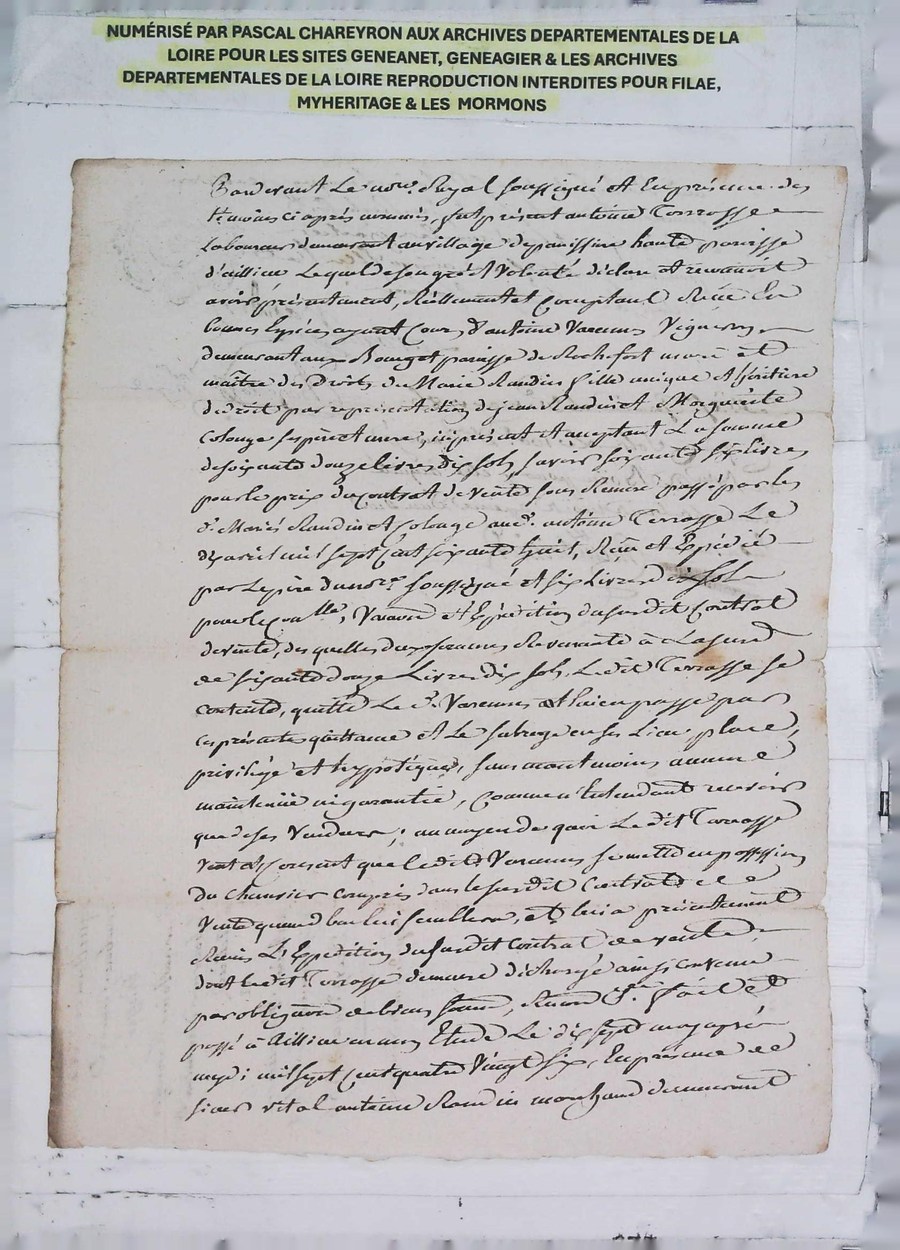 NUMÉRISÉ PAR PASCAL CHAREYRON AUX ARCHIVES DEPARTEMENTALES DE LA
LOIRE POUR LES SITES GENEANET, GENEAGIER & LES ARCHIVES
DEPARTEMENTALES DE LA LOIRE REPRODUCTION INTERDITES POUR FILAE,
MYHERITAGE & LES MORMONS
Pardevant Le notre. Royal soussigné et En présence des
témoins ci après nommés, fut présent antoine Terrasse
Laboureur demeurant au village de panissière haute paroisse
d'aillieu Lequel de son gré et volonté déclare et reconnoit
avoir présentement, Réellement et Comptant Recu En
bonnes Espèces ayant Cours d'antoine Varennes Vigneron
demeurant au Bourg paroisse de Rochefort mari et
maître des Droits de Marie Raudin fille unique et héritière
de droit par représentation de jean Raudin et Marguerite
Colonge ses père et mere, ici présent et acceptant La somme
de soixante douze livres dix sols, savoir soixante six livres
pour le prix du Contrat de vente sous Remere passé par les
d. Mariés Raudin et Colonge au d. antoine Terrasse Le
avril mil sept Cent soixante huit, Recu et Expédié
par Le père du notre. soussigné et six Livres dix sols
pour le Conlle, Vacation et Expédition du susdit Contrat
de vente, des quelles deux sommes Revenante à La susd.
de soixante douze Livres dix sols, Le dit Terrasse se
contente, quitte Le d. Varennes et Lui en passe par
ces présentes quittance et Le subroge en ses Lieu, place,
privilège et hypotèques, sans neantmoins aucune
maintenüe ni garantie, Comme n'entendant recevoir
que de ses Vendeurs; au moyen de quoi Le dit Terrasse
veut et consent que Ledit Varennes se mette en possession
du Chenevier compris dans le susdit Contrat de
Vente quand bon lui semblera, et lui a présentement
Remis L'Expedition du susdit contrat de vente,
dont Le dit Terrasse demeure déchargé ainsi convenu
par obligation de biens soum. Renon. Cl. Fait et
passé à Aillieu en mon Etude Le dix sept may après
midi mil sept Cent quatre Vingt six, En présence de
sieur vital antoine Raudin marchand demeurant